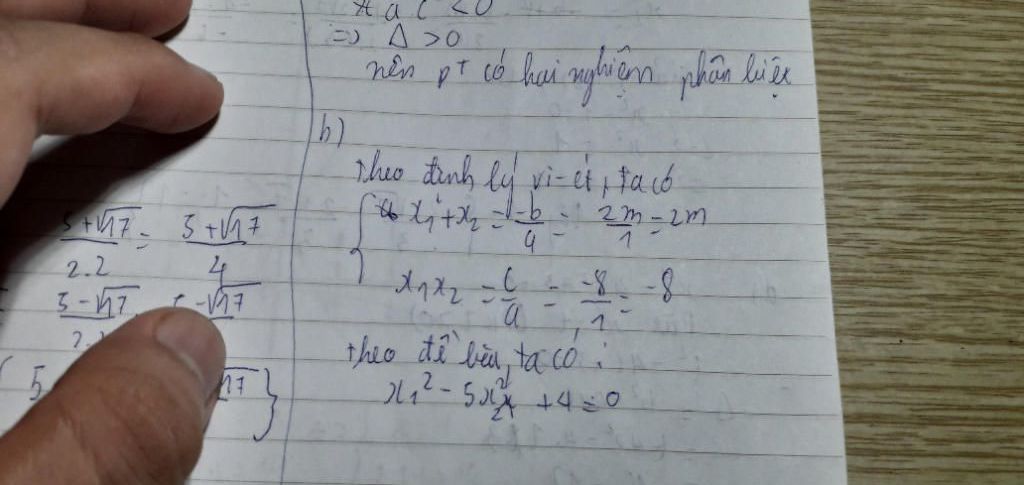 a c < 0
=> Δ > 0
nên pt có hai nghiệm phân biệt
b)
Theo định lý vi-ét, ta có
x₁ + x₂ = -b/a = 2m/1 = 2m
x₁x₂ = c/a = -8/1 = -8
theo đề bài, ta có :
x₁² - 5x₂² + 4 = 0
5+√17/2.2 = 5+√17/4
5-√17
-√17
5